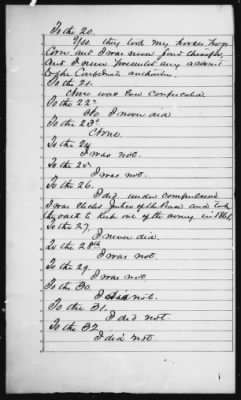 To the 20.
Yes. they took my horses hogs
Corn and I was never paid therefor,
And I never presented any account
to the Confederate authorities.
To the 21.
None was ever Confiscated
To the 22d
No I never did
To the 23d
None.
To the 24
I was not.
To the 25.
I was not.
To the 26.
I did under compulsion
I was elected Justice of the Peace and took
the oath to keep out of the army in 1864.
To the 27.
I never did.
To the 28th
I was not.
To the 29.
I was not
To the 30.
I did not.
To the 31.
I did not.
To the 32
I did not